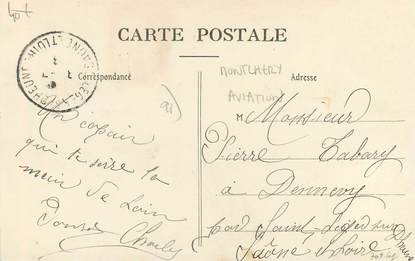 40€
CARTE POSTALE
Correspondance
Adresse
MONTLHERY
AVIATION
(91)
Un copain
qui te serre la
main de loin
Charly
M Monsieur
Pierre Tabary
à Dennevy
par Saint-Léger sur Dheune
Saône & Loire